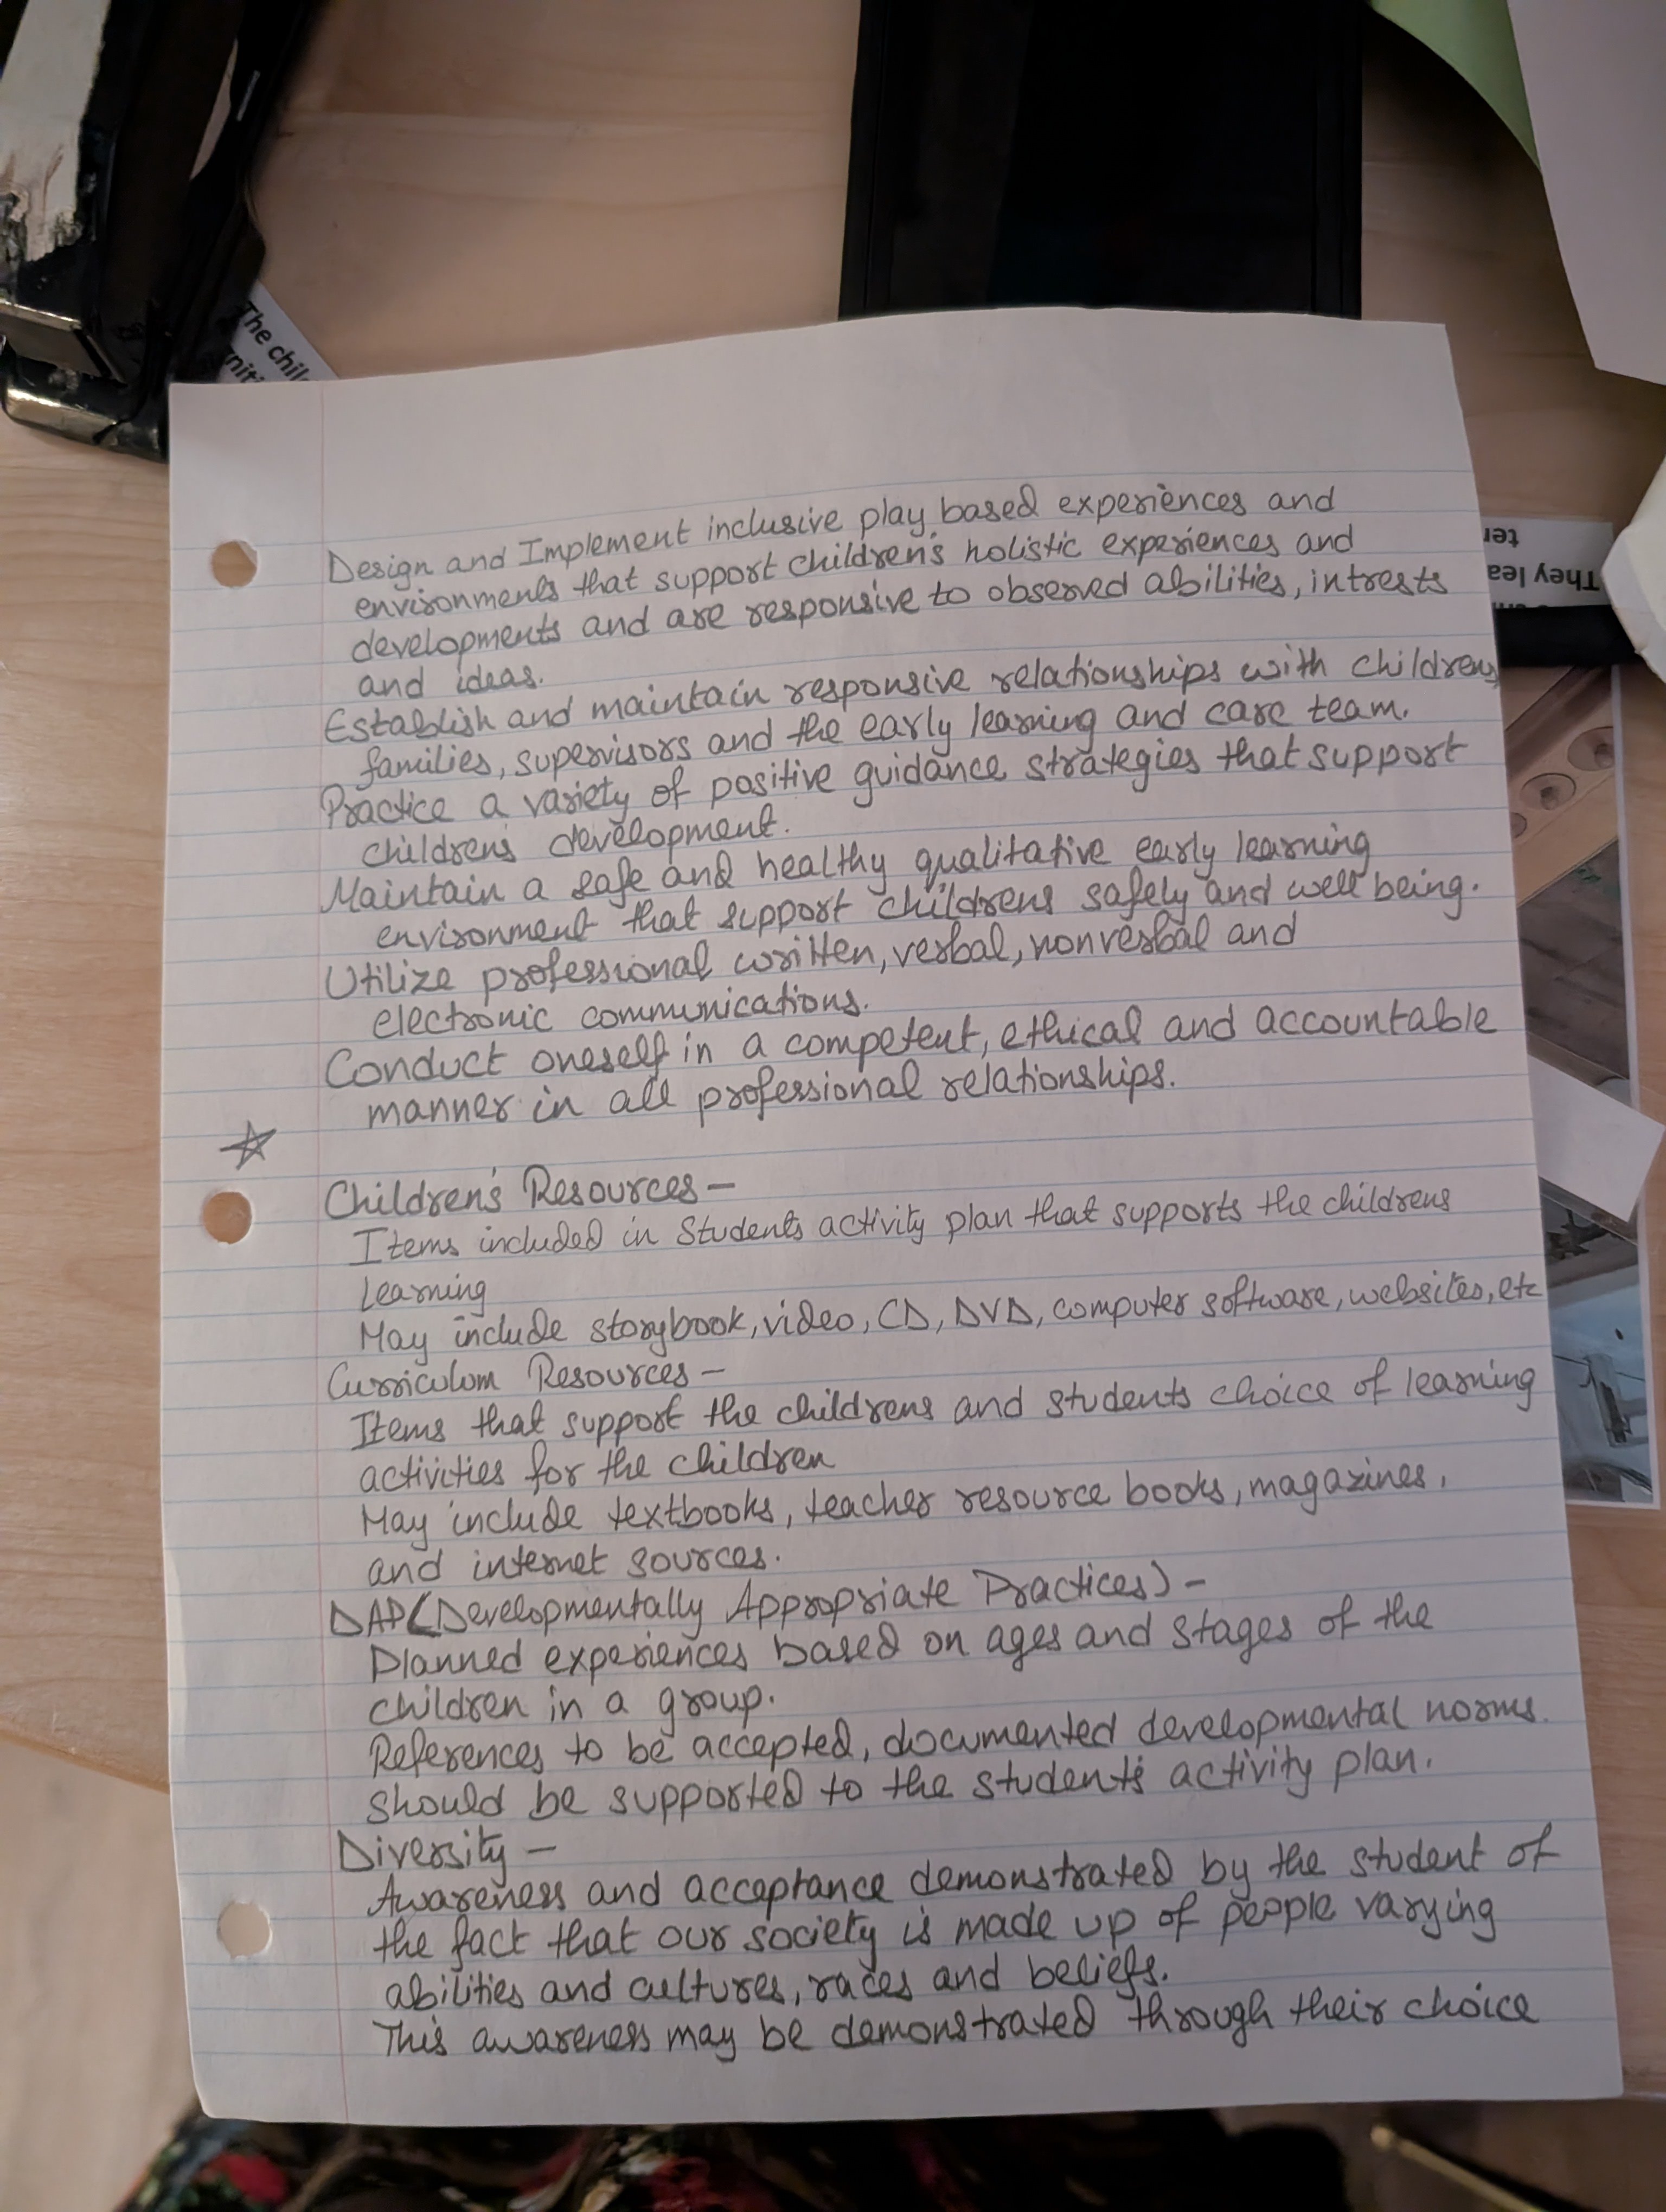 The chil
niti
ter
They lea
Design and Implement inclusive play based experiences and
environments that support children's holistic experiences and
developments and are responsive to observed abilities, intrests
and ideas.
Establish and maintain responsive relationships with childrens
families, supervisors and the early learning and care team.
Practice a variety of positive guidance strategies that support
children's development.
Maintain a safe and healthy qualitative early learning
environment that support childrens safely and well being.
Utilize professional written, verbal, nonverbal and
electronic communications.
Conduct oneself in a competent, ethical and accountable
manner in all professional relationships.
Children's Resources –
Items included in Student's activity plan that supports the childrens
Learning
May include storybook, video, CD, DVD, computer software, websites, etc
Curriculum Resources –
Items that support the childrens and students choice of learning
activities for the children
May include textbooks, teacher resource books, magazines,
and internet sources.
DAP (Developmentally Appropriate Practices) –
Planned experiences based on ages and stages of the
children in a group.
References to be accepted, documented developmental norms.
should be supported to the student's activity plan.
Diversity –
Awareness and acceptance demonstrated by the student of
the fact that our society is made up of people varying
abilities and cultures, races and beliefs.
This awareness may be demonstrated through their choice